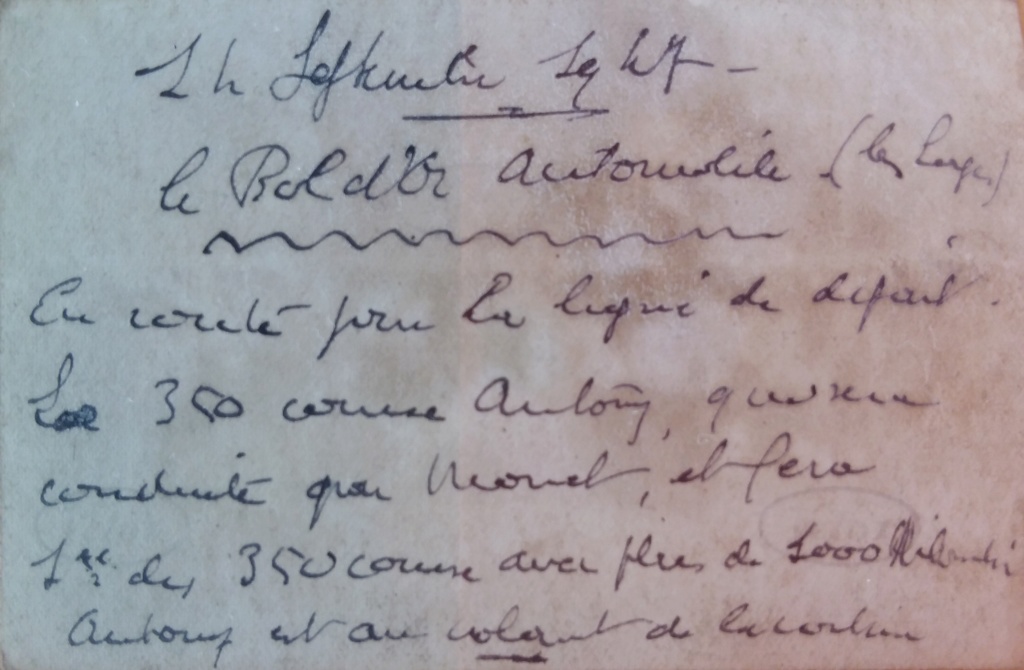 14 Septembre 1947 -
le Bol d'Or Automobile (
En route pour la ligne de départ.
La 350 course Antony, qui sera
conduite par Monet, et fera
1re des 350 course avec plus de 1000 Kilomètr
Antony est au volant de la voiture